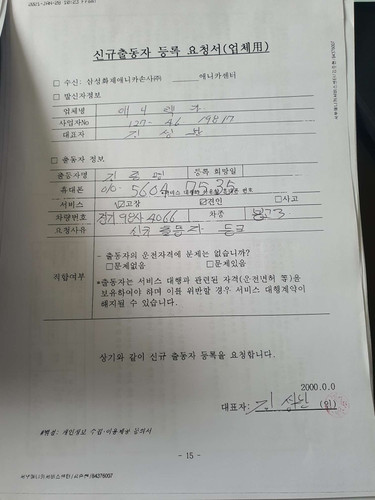 신규출동자 등록 요청서(업체用)
□ 수신: 삼성화재애니카손사㈜ 애니카센터
□ 발신자정보
업체명
사업자No 127-46
대표자
□ 출동자 정보
출동자명 등록 희망일
휴대폰 010-5604-7535
서비스 ☑고장 ☑견인 □사고
차량번호 경기 98사 4066 차종 봉고3
요청사유 신규 출동자 등록
적합여부
- 출동자의 운전자격에 문제는 없습니까?
□문제없음 □문제있음
*출동자는 서비스 대행과 관련된 자격(운전면허 等)을
보유하여야 하며 이를 위반할 경우 서비스 대행계약이
해지될 수 있습니다.
상기와 같이 신규 출동자 등록을 요청합니다.
2000.0.0
대표자: (인)
#별첨: 개인정보 수집·이용제공 동의서
- 15 -